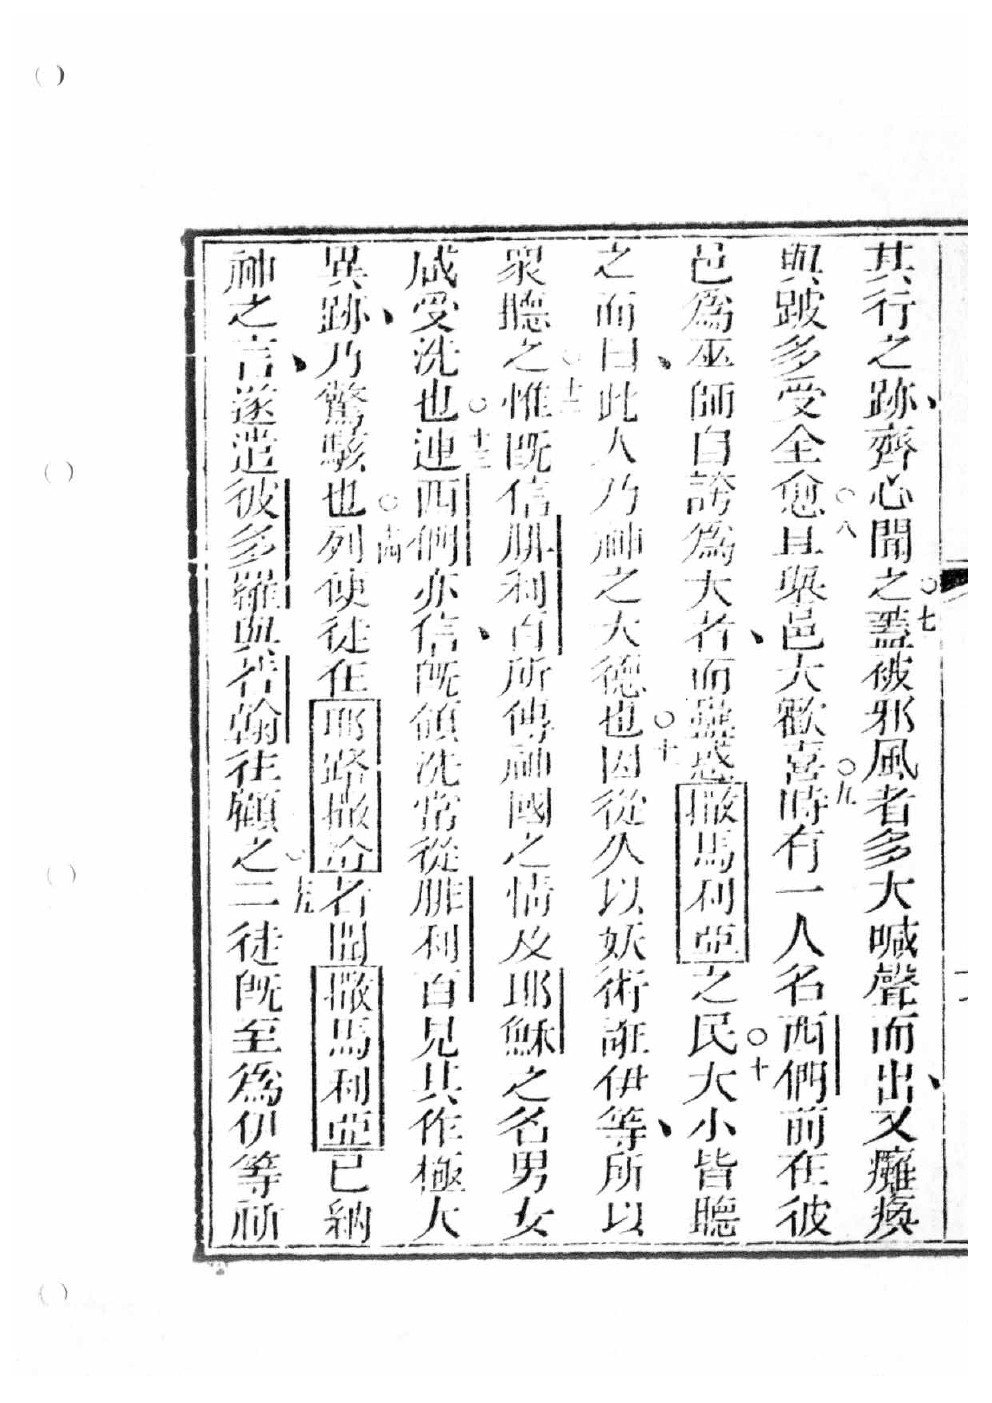 其行之跡、齊心聞之○七蓋被邪風者多大喊聲而出、又癱瘓
與跛多受全愈○八且舉邑大歡喜○九時有一人名西們前在彼
邑為巫師自誇為大者、而蠱惑撒馬利亞之民○十大小皆聽
之而曰、此人乃神之大德也○十一因從久以妖術誑伊等、所以
衆聽之○十二惟既信腓利百所傳神國之情及耶穌之名男女
咸受洗也○十三連西們亦信、既領洗常從腓利百見其作極大
異跡、乃驚駭也○十四列使徒在耶路撒冷者聞撒馬利亞已納
神之言、遂遣彼多羅與若翰往顧之○十五二徒既至為伊等祈